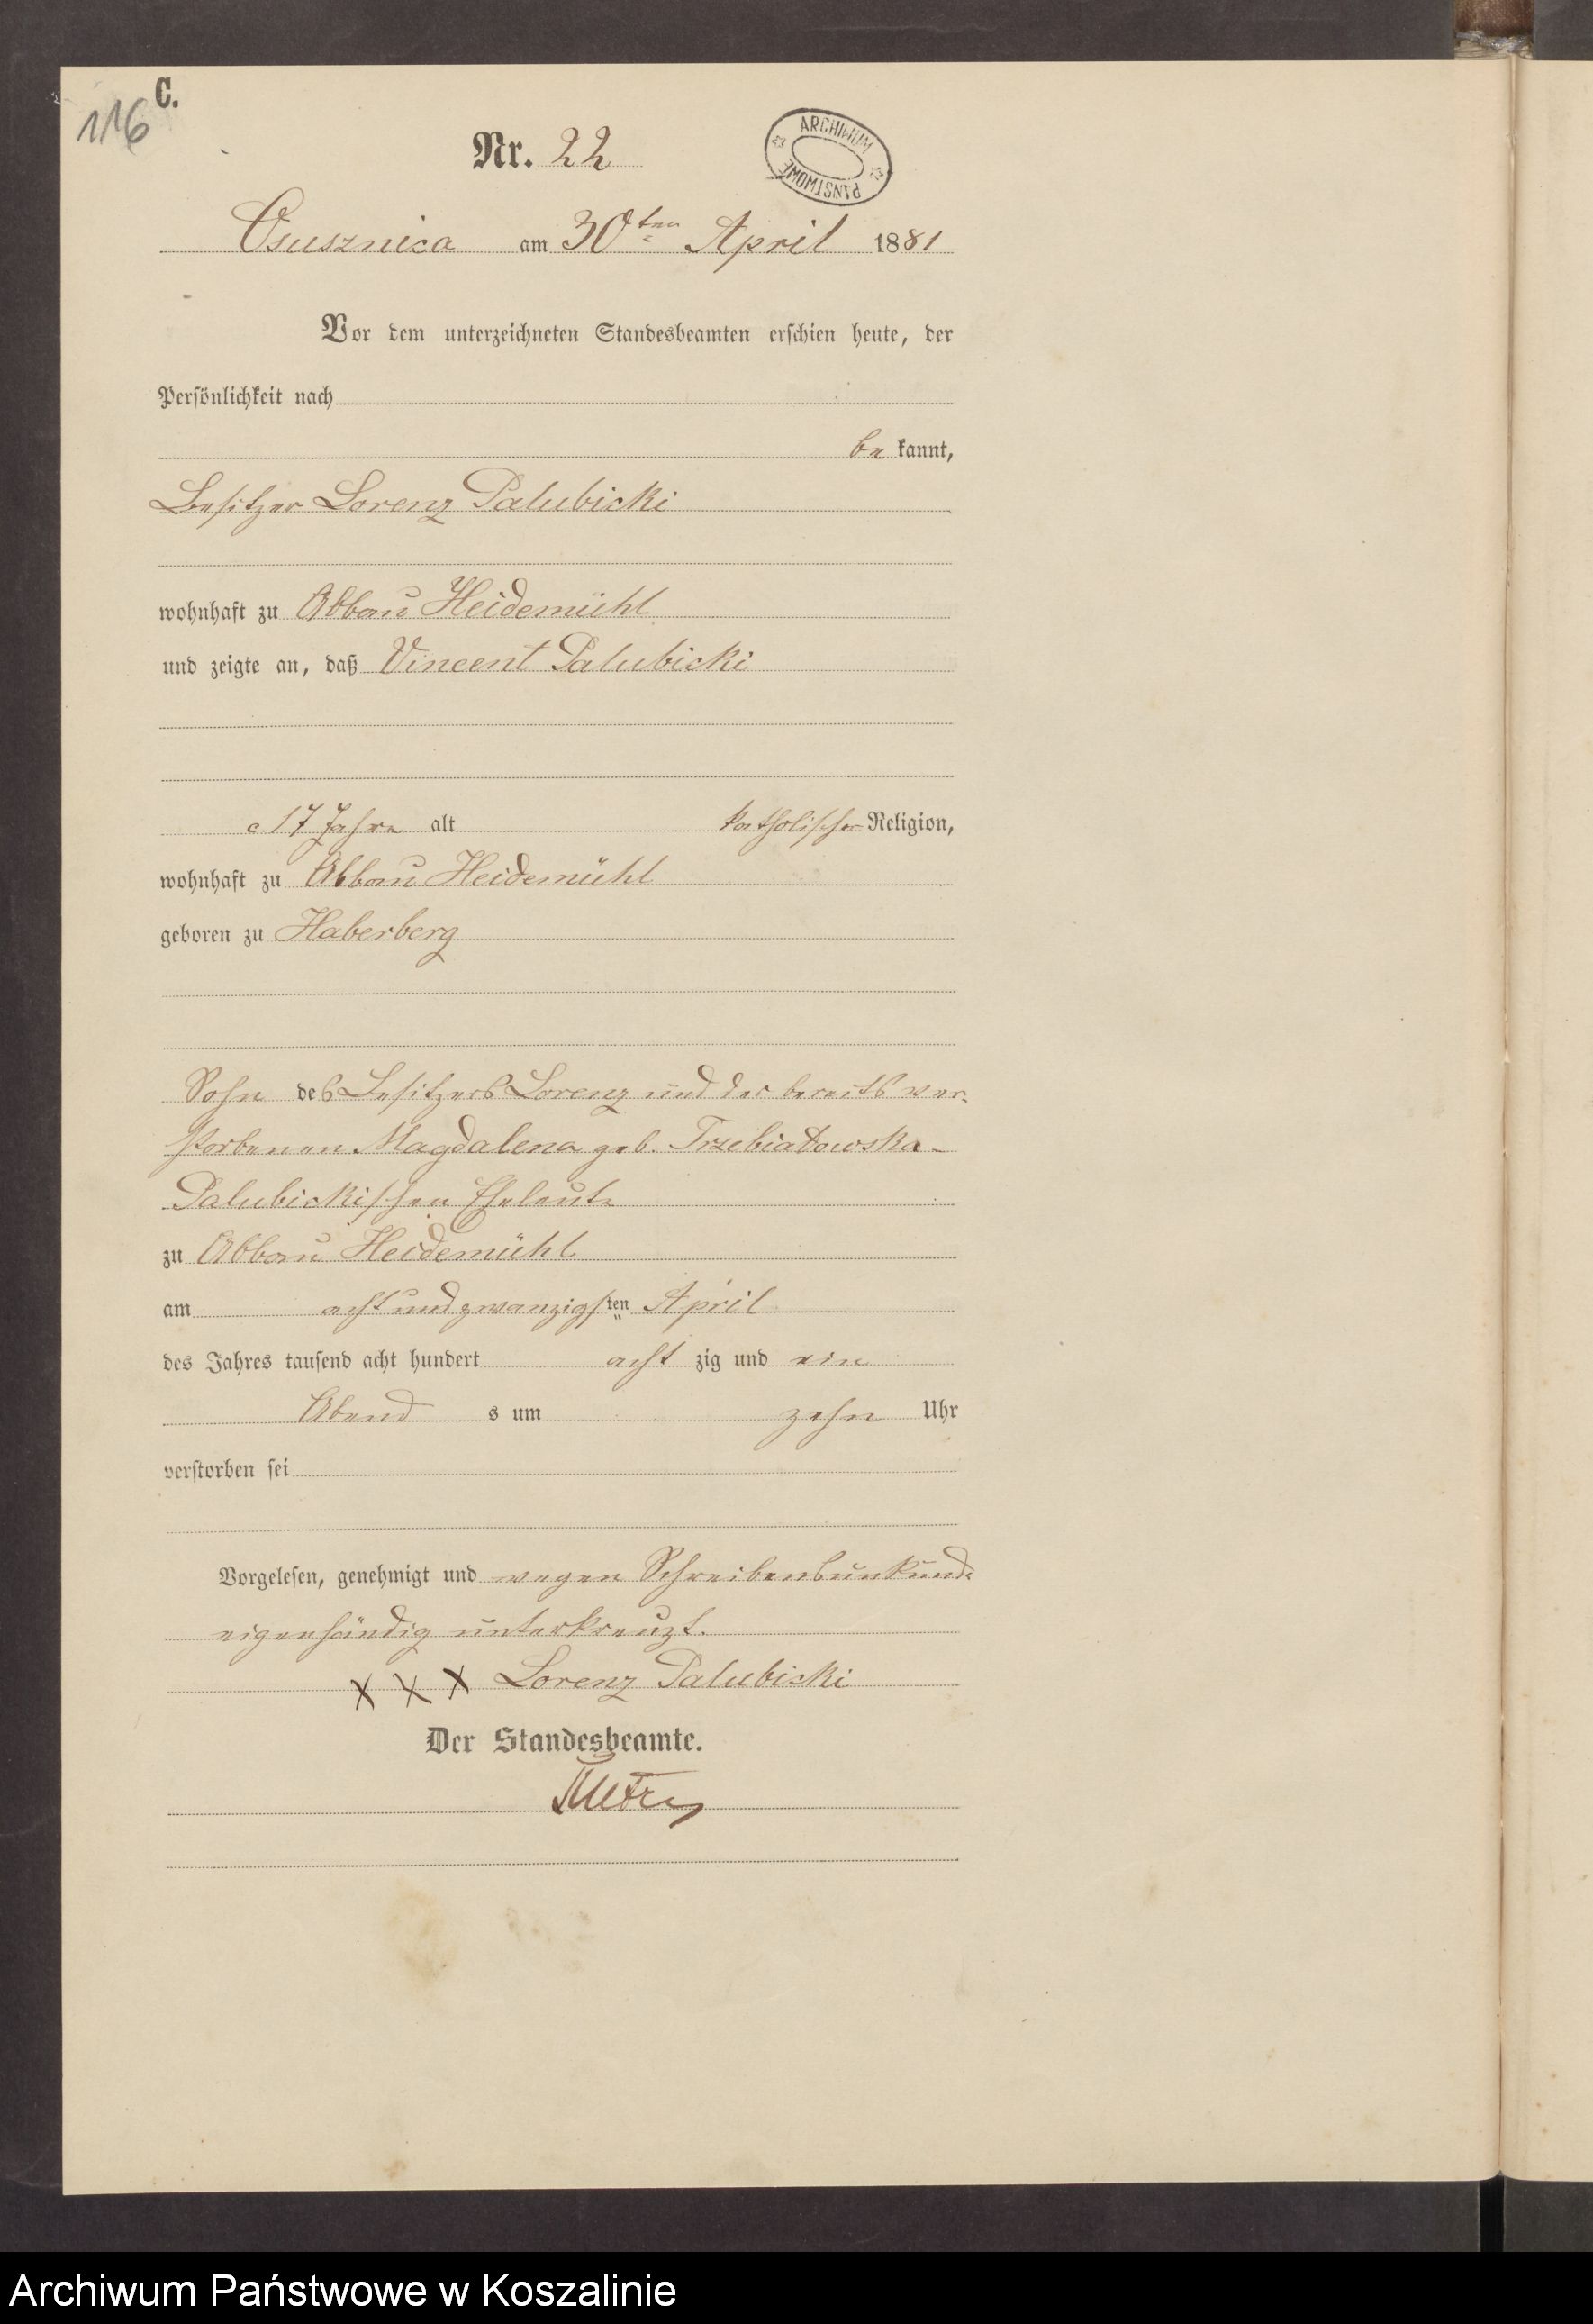 C.
116
Nr. 22
ARCHIWUM PAŃSTWOWE
Osusznica am 30ten April 1881
Vor dem unterzeichneten Standesbeamten erschien heute, der
Persönlichkeit nach
be kannt,
Besitzer Lorenz Palubicki
wohnhaft zu Abbau Heidemühl
und zeigte an, daß Vincent Palubicki
c. 17 Jahre alt katholischer Religion,
wohnhaft zu Abbau Heidemühl
geboren zu Haberberg
Sohn des Besitzers Lorenz und der bereits ver-
storbenen Magdalena geb. Trzebiatowska-
Palubickischen Eheleute
zu Abbau Heidemühl
am acht und zwanzigsten April
des Jahres tausend acht hundert acht zig und ein
Abend s um zehn Uhr
verstorben sei
Vorgelesen, genehmigt und wegen Schreibensunkunde
eigenhändig unterkreuzt.
X X X Lorenz Palubicki
Der Standesbeamte.
Archiwum Państwowe w Koszalinie